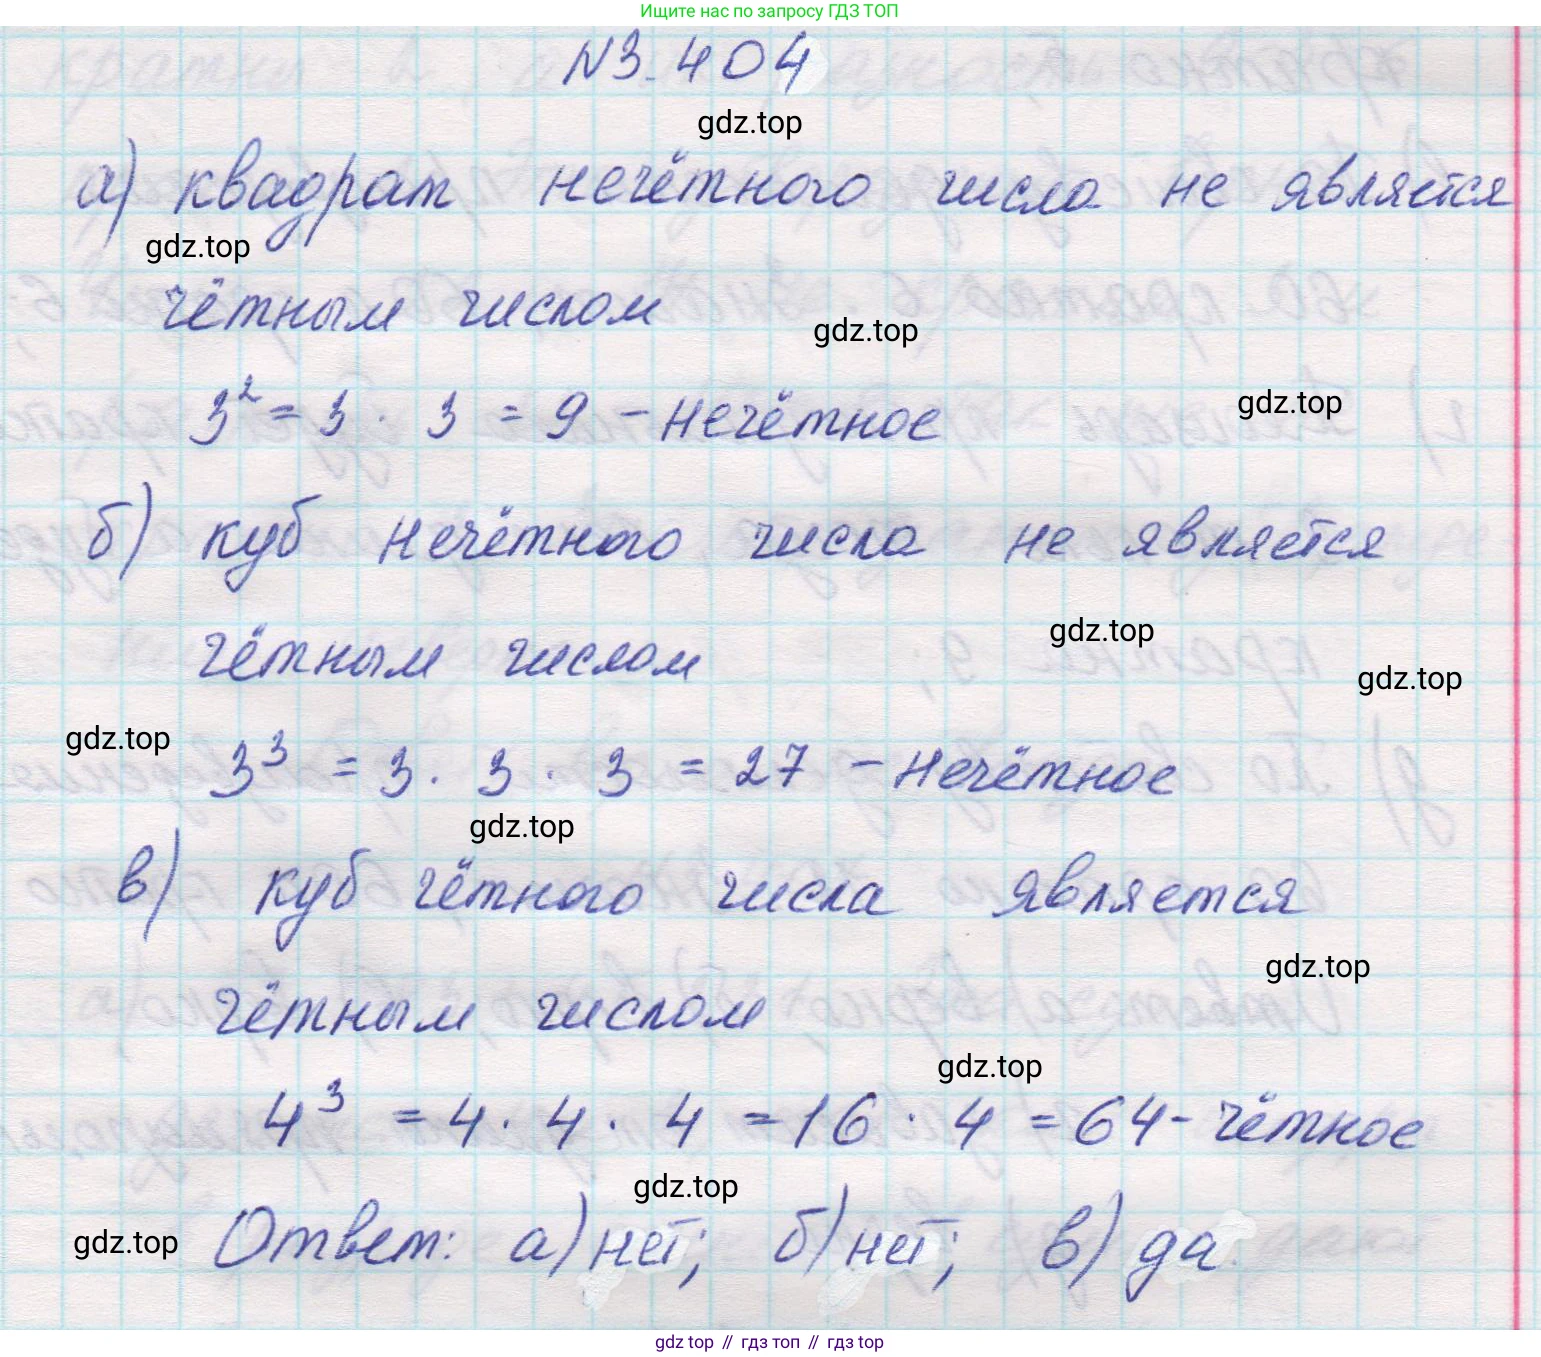 Ищите нас по запросу ГДЗ ТОП
N3.404
gdz.top
а) квадрат нечётного числа не является
gdz.top
чётным числом
gdz.top
3² = 3 · 3 = 9 – нечётное
gdz.top
б) куб нечётного числа не является
чётным числом
gdz.top
gdz.top
gdz.top
3³ = 3 · 3 · 3 = 27 – нечётное
gdz.top
в) куб чётного числа является
gdz.top
чётным числом
gdz.top
4³ = 4 · 4 · 4 = 16 · 4 = 64 - чётное
gdz.top
gdz.top
Ответ: а) нет; б) нет; в) да.
gdz top // гдз топ // гдз top